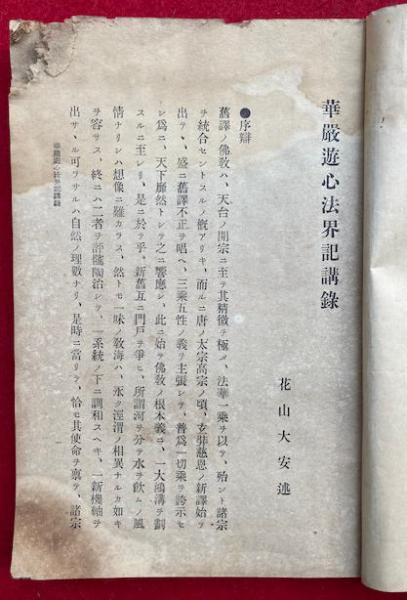 華嚴遊心法界記講錄
花山大安述
●序辯
舊譯ノ佛敎ハ、天台ノ開宗ニ至テ其精微ヲ極メ、法華一乘ヲ以テ、殆ント諸宗
ヲ統合セントスルノ慨アリキ、而ルニ唐ノ太宗高宗ノ頃、玄弉慈恩ノ新譯始テ
出テ、盛ニ舊譯不正ヲ唱ヘ、三乘五性ノ義ヲ主張シテ、普爲一切乘ヲ誇示セ
シ爲ニ、天下靡然トシテ之ニ響應シ、此ニ始テ佛敎ノ根本義ニ、一大鴻溝ヲ劃
スルニ至レリ、是ニ於テ乎、新舊互ニ門戶ヲ爭ヒ、所謂河ヲ分テ水ヲ飮ムノ風
情ナリシハ想像ニ難カラス、然トモ一味ノ敎海ハ、永ク涇渭ノ相異ナルカ如キ
ヲ容サス、終ニハ二者ヲ評隲陶治シテ、一系統ノ下ニ調和スヘキ、一新機軸ヲ
出サヽル可ラサルハ自然ノ理數ナリ、是時ニ當リテ、恰モ其使命ヲ禀テ、諸宗
華嚴遊心法界記講錄
一